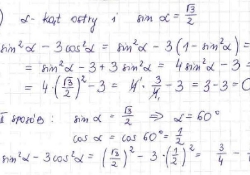 ) α - kąt ostry i sin α = √3/2
sin²α - 3cos²α = sin²α - 3(1 - sin²α) =
= sin²α - 3 + 3 sin²α = 4 sin²α - 3
= 4·(√3/2)² - 3 = 4·3/4 - 3 = 3 - 3 = 0
sposób: sin α = √3/2 ⇒ α = 60°
cos α = cos 60° = 1/2
sin²α - 3cos²α = (√3/2)² - 3·(1/2)² = 3/4 -